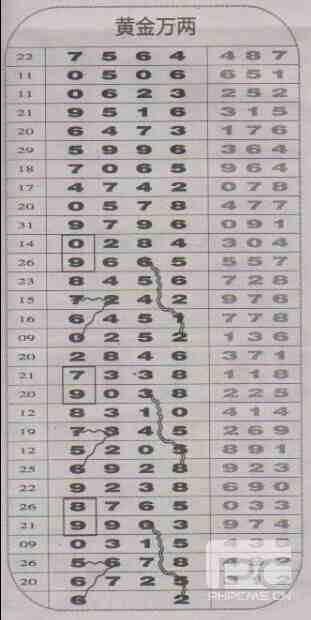 黄金万两
22 7 5 6 4 4 8 7
11 0 5 0 6 6 5 1
11 0 6 2 3 2 5 2
21 9 5 1 6 3 1 5
20 6 4 7 3 1 7 6
29 5 9 9 6 3 6 4
18 7 0 6 5 9 6 4
17 4 7 4 2 0 7 8
20 0 5 7 8 4 7 7
31 9 7 9 6 0 9 1
14 0 2 8 4 3 0 4
26 9 6 6 5 5 5 7
23 8 4 5 6 7 2 8
15 7 2 4 2 9 7 6
16 6 4 5 1 7 7 8
09 0 2 5 2 1 3 6
20 2 8 4 6 3 7 1
21 7 3 3 8 1 1 8
20 9 0 3 8 2 2 5
12 8 3 1 0 4 1 4
19 7 3 4 5 2 6 9
12 5 2 0 5 8 9 1
25 6 9 2 8 9 2 3
22 9 2 3 8 6 9 0
26 8 7 6 5 0 3 3
21 9 9 0 3 9 7 4
09 0 3 1 5 4 3
26 5 6 7 8 2
20 6 7 2 5 2
6 2
PC
PHPCMS.CN